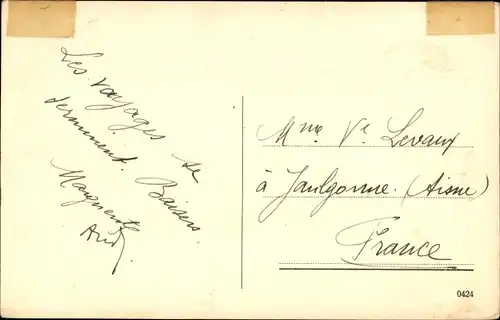 Les voyages se
terminent. Baisers.
Marguerite
And.
Mme Ve Levaux
à Jaulgonne. (Aisne)
France
0424